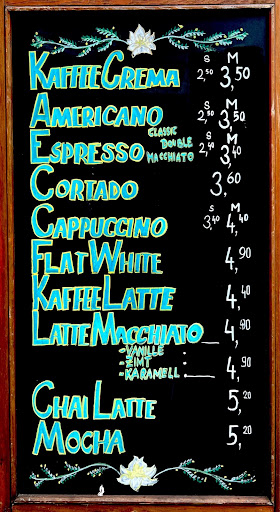 S M
KAFFEE CREMA 2,50 3,50
S M
AMERICANO 2,50 3,50
S M
ESPRESSO CLASSIC DOUBLE MACCHIATO 2,40 3,40
CORTADO 3,60
S M
CAPPUCCINO 3,40 4,40
FLAT WHITE 4,90
KAFFEE LATTE 4,40
LATTE MACCHIATO 4,90
- VANILLE :
- ZIMT :
- KARAMELL : 4,90
CHAI LATTE 5,20
MOCHA 5,20